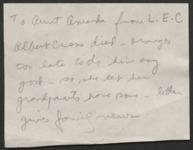 To Aunt Amanda from L.E.C
Albert Cross died - oranges
too late to do him any
good - so she let her
grandparents have some -
gives family news